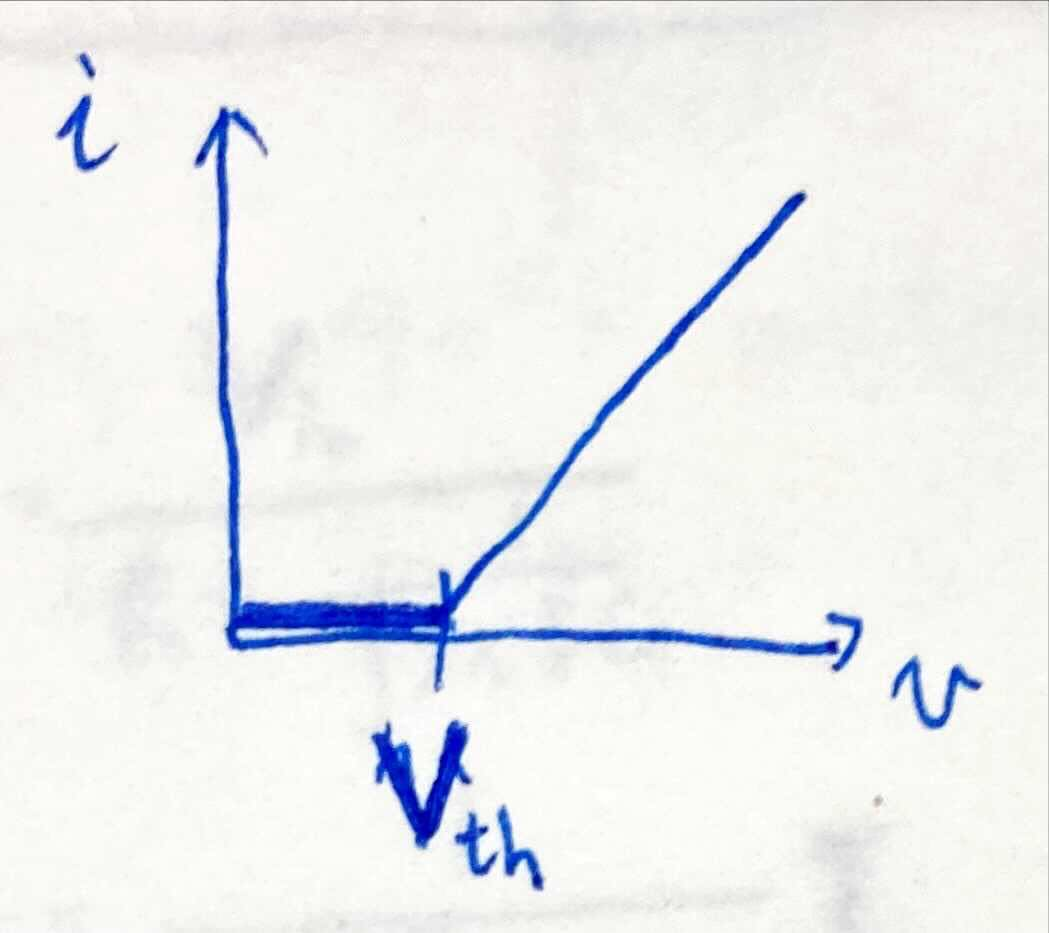 i
v
V_th